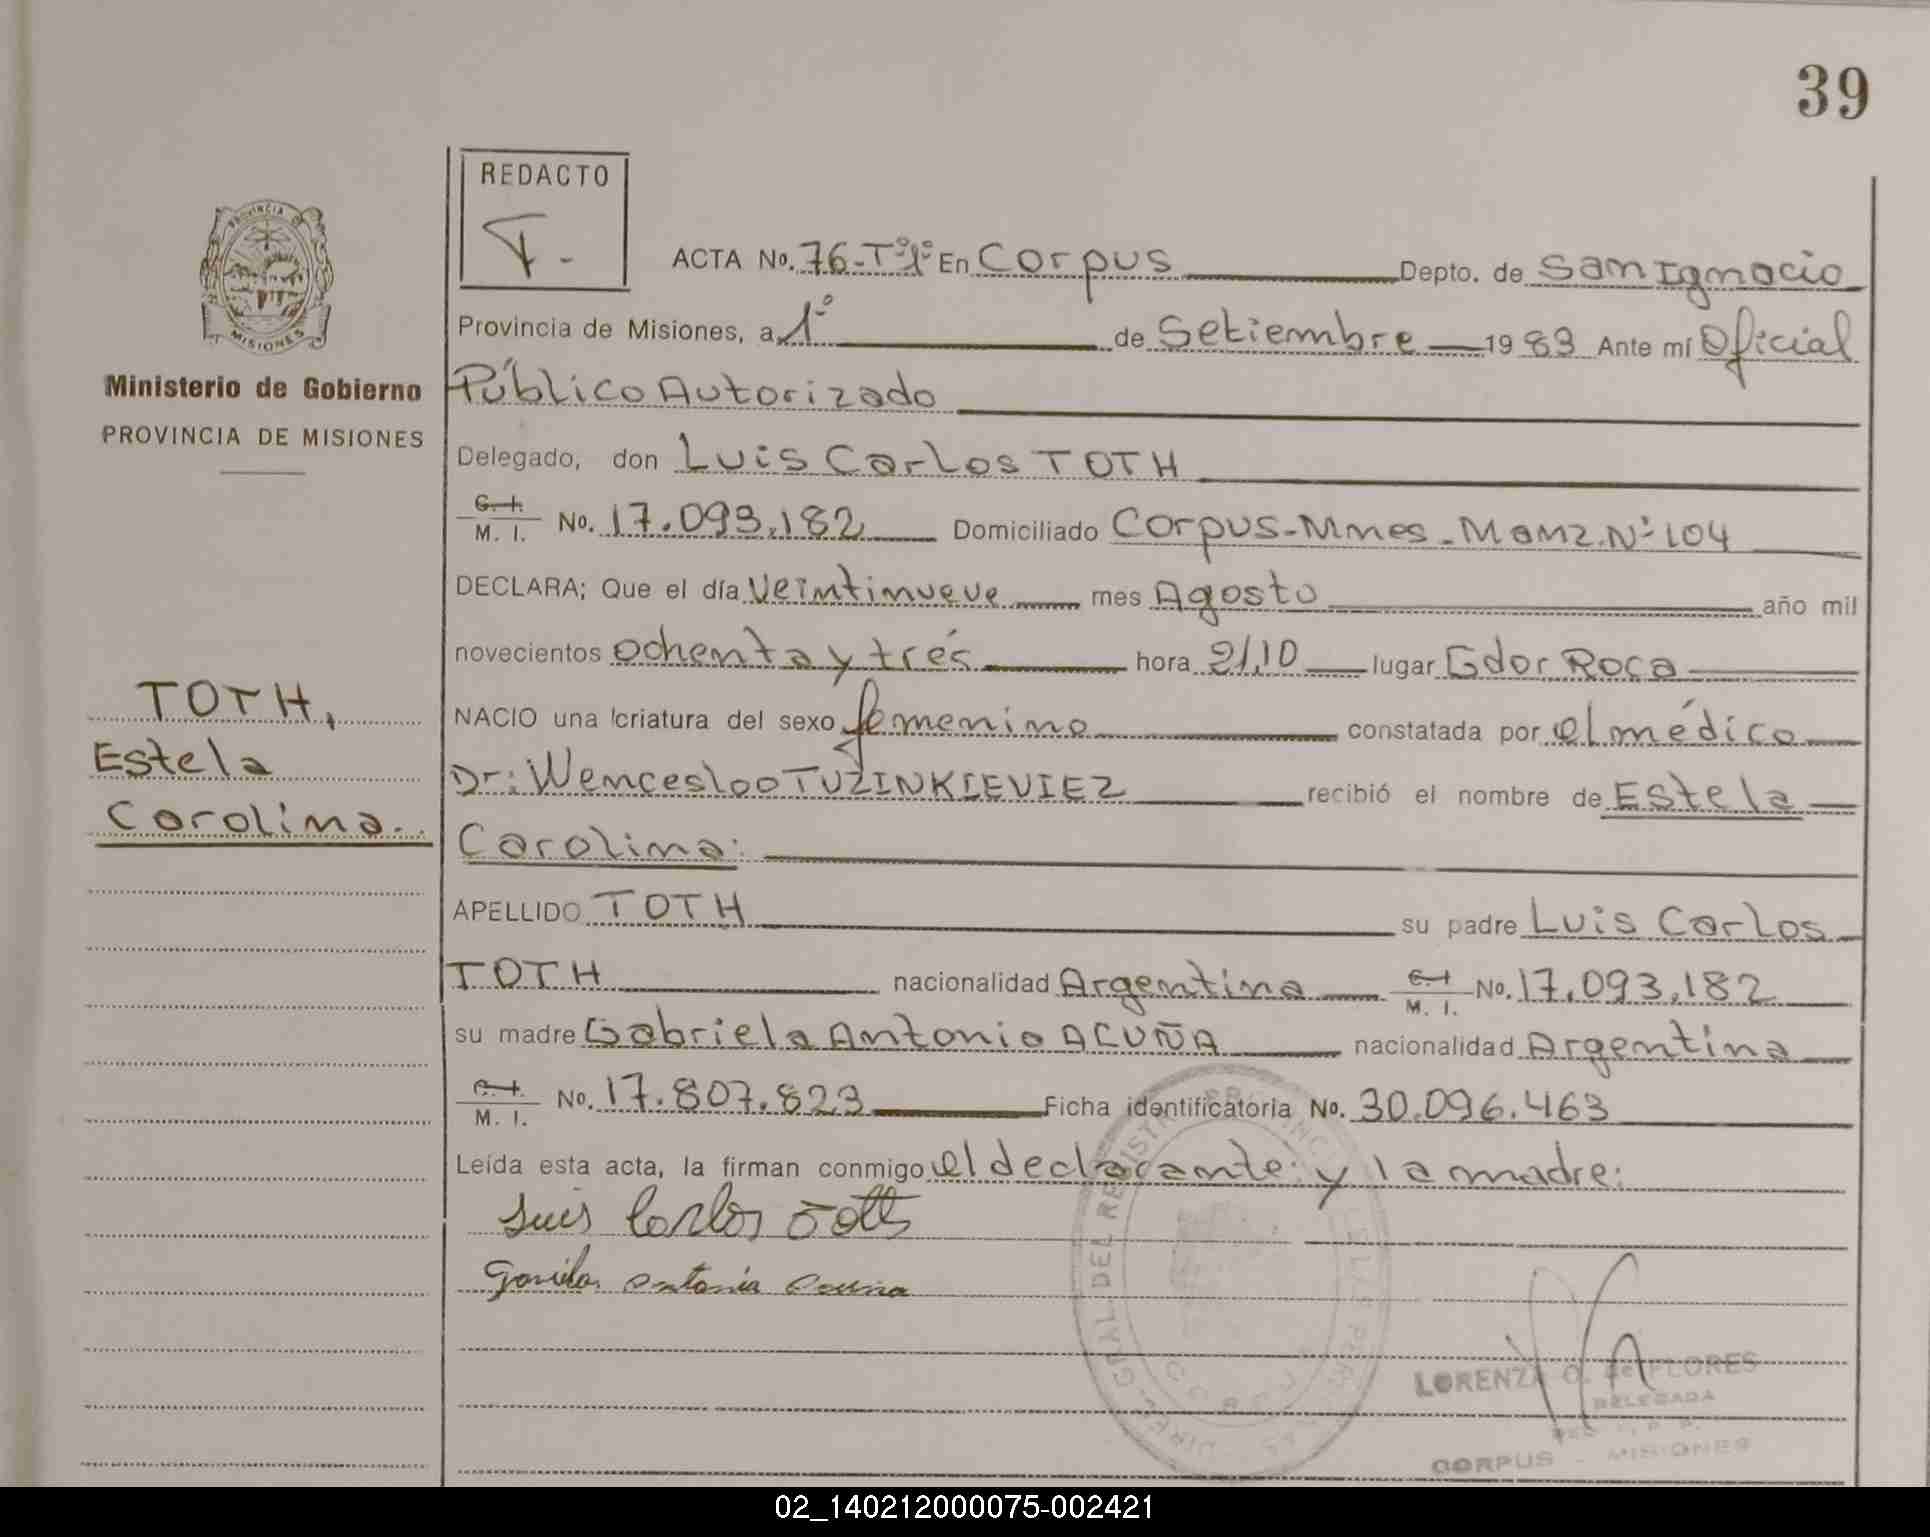 39
REDACTO
ACTA No. 76-Tº1º En Corpus Depto. de San Ignacio
Provincia de Misiones, a 1º de Setiembre 1983 Ante mí Oficial
Público Autorizado
Ministerio de Gobierno
PROVINCIA DE MISIONES
Delegado, don Luis Carlos TOTH
C. I.
M. I. No. 17.093.182 Domiciliado Corpus-Mnes-Manz.Nº 104
DECLARA; Que el día Veintinueve mes Agosto año mil
novecientos ochenta y trés hora 21,10 lugar Gdor Roca
TOTH,
Estela
Carolina.
NACIO una criatura del sexo femenino constatada por el médico
Dr: Wenceslao TUZINKIEVIEZ recibió el nombre de Estela
Carolina:
APELLIDO TOTH su padre Luis Carlos
TOTH nacionalidad Argentina C. I.
M. I. No. 17.093.182
su madre Gabriela Antonia ACUÑA nacionalidad Argentina
C. I.
M. I. No. 17.807.823 Ficha identificatoria No. 30.096.463
Leída esta acta, la firman conmigo el declarante: y la madre:
Luis Carlos Toth
Antonia Acuña
LORENZA O. de FLORES
DELEGADA
CORPUS - MISIONES
02_140212000075-002421